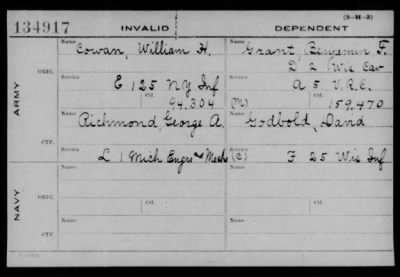 (3-H-3)
134917 INVALID DEPENDENT
Name Cowan, William H. Name Grant, Benjamin F.
D 2 Wis Cav
ORIG. Service E 125 NY Inf Service A 5 V.R.C.
Ctf. 94,304 (M) Ctf. 159,470
ARMY
Name Richmond, George A. Name Godbold, David
CTF. Service L 1 Mich Engrs & Mechs (C) Service F 25 Wis Inf
Name Name
ORIG. Service Service
Ctf. Ctf.
NAVY
Name Name
CTF. Service Service